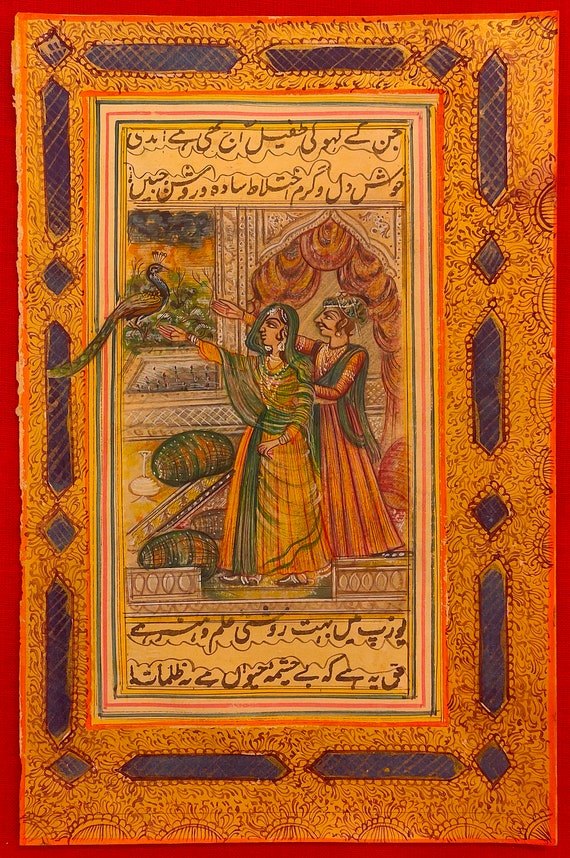 جن کے لہو کی طفیل آج بھی ہے
خوش دل و گرم اختلاط سادہ و روشن جبیں
یورپ میں بہت روشنی علم و ہنر ہے
حق یہ ہے کہ بے چشمہ حیواں ہے یہ ظلمات